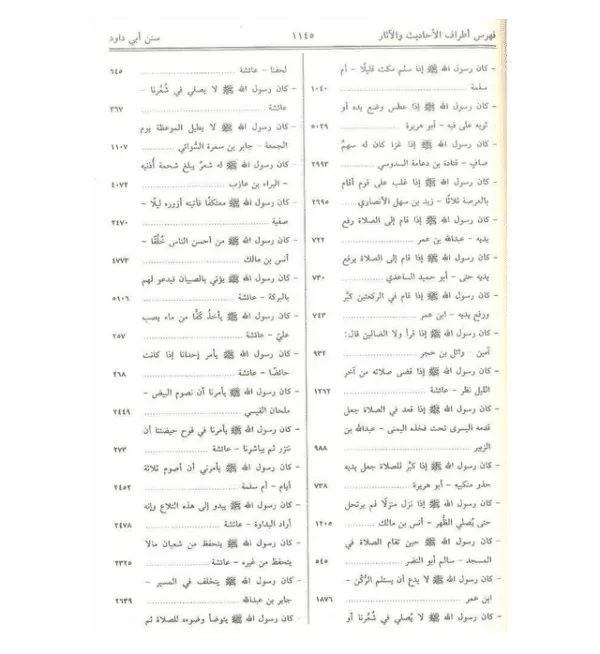 فهرس أطراف الأحاديث والآثار ١١٤٥ سنن أبي داود
- كان رسول الله ﷺ إذا سلم مكث قليلًا - أم
سلمة ........ ١٠٤٠
- كان رسول الله ﷺ إذا عطس وضع يده أو
ثوبه على فيه - أبو هريرة ........ ٥٠٢٩
- كان رسول الله ﷺ إذا غزا كان له سهمٌ
صافٍ - قتادة بن دعامة السدوسي ........ ٢٩٩٣
- كان رسول الله ﷺ إذا غلب على قوم أقام
بالعرصة ثلاثًا - زيد بن سهل الأنصاري ........ ٢٦٩٥
- كان رسول الله ﷺ إذا قام إلى الصلاة رفع
يديه - عبدالله بن عمر ........ ٧٢٢
- كان رسول الله ﷺ إذا قام إلى الصلاة يرفع
يديه حتى - أبو حميد الساعدي ........ ٧٣٠
- كان رسول الله ﷺ إذا قام في الركعتين كبَّر
ورفع يديه - ابن عمر ........ ٧٤٣
- كان رسول الله ﷺ إذا قرأ ولا الضالين قال:
آمين - وائل بن حجر ........ ٩٣٢
- كان رسول الله ﷺ إذا قضى صلاته من آخر
الليل نظر - عائشة ........ ١٢٦٢
- كان رسول الله ﷺ إذا قعد في الصلاة جعل
قدمه اليسرى تحت فخذه اليمنى - عبدالله بن
الزبير ........ ٩٨٨
- كان رسول الله ﷺ إذا كبَّر للصلاة جعل يديه
حذو منكبيه - أبو هريرة ........ ٧٣٨
- كان رسول الله ﷺ إذا نزل منزلًا لم يرتحل
حتى يُصلي الظُهر - أنس بن مالك ........ ١٢٠٥
- كان رسول الله ﷺ حين تقام الصلاة في
المسجد - سالم أبو النضر ........ ٥٤٥
- كان رسول الله ﷺ لا يدع أن يستلم الرُّكن -
ابن عمر ........ ١٨٧٦
- كان رسول الله ﷺ لا يُصلي في شُعرنا أو
لحفنا - عائشة ........ ٦٤٥
- كان رسول الله ﷺ لا يصلي في شُعرنا -
عائشة ........ ٣٦٧
- كان رسول الله ﷺ لا يطيل الموعظة يوم
الجمعة - جابر بن سمرة السُّوائي ........ ١١٠٧
- كان رسول الله ﷺ له شعرٌ يبلغ شحمة أذنيه
- البراء بن عازب ........ ٤٠٧٢
- كان رسول الله ﷺ معتكفًا فأتيته أزوره ليلًا -
صفية ........ ٢٤٧٠
- كان رسول الله ﷺ من أحسن الناس خُلُقًا -
أنس بن مالك ........ ٤٧٧٣
- كان رسول الله ﷺ يؤتي بالصبيان فيدعو لهم
بالبركة - عائشة ........ ٥١٠٦
- كان رسول الله ﷺ يأخذُ كفًّا من ماء يصب
عليّ - عائشة ........ ٢٥٧
- كان رسول الله ﷺ يأمر إحدانا إذا كانت
حائضًا - عائشة ........ ٢٦٨
- كان رسول الله ﷺ يأمرنا أن نصوم البيض -
ملحان القيسي ........ ٢٤٤٩
- كان رسول الله ﷺ يأمرنا في فوح حيضتنا أن
نتزر ثم يباشرنا - عائشة ........ ٢٧٣
- كان رسول الله ﷺ يأمرني أن أصوم ثلاثة
أيام - أم سلمة ........ ٢٤٥٢
- كان رسول الله ﷺ يبدو إلى هذه التلاع وإنه
أراد البداوة - عائشة ........ ٢٤٧٨
- كان رسول الله ﷺ يتحفظ من شعبان مالا
يتحفظ من غيره - عائشة ........ ٢٣٢٥
- كان رسول الله ﷺ يتخلف في المسير -
جابر بن عبدالله ........ ٢٦٣٩
- كان رسول الله ﷺ يتوضأ وضوءه للصلاة ثم